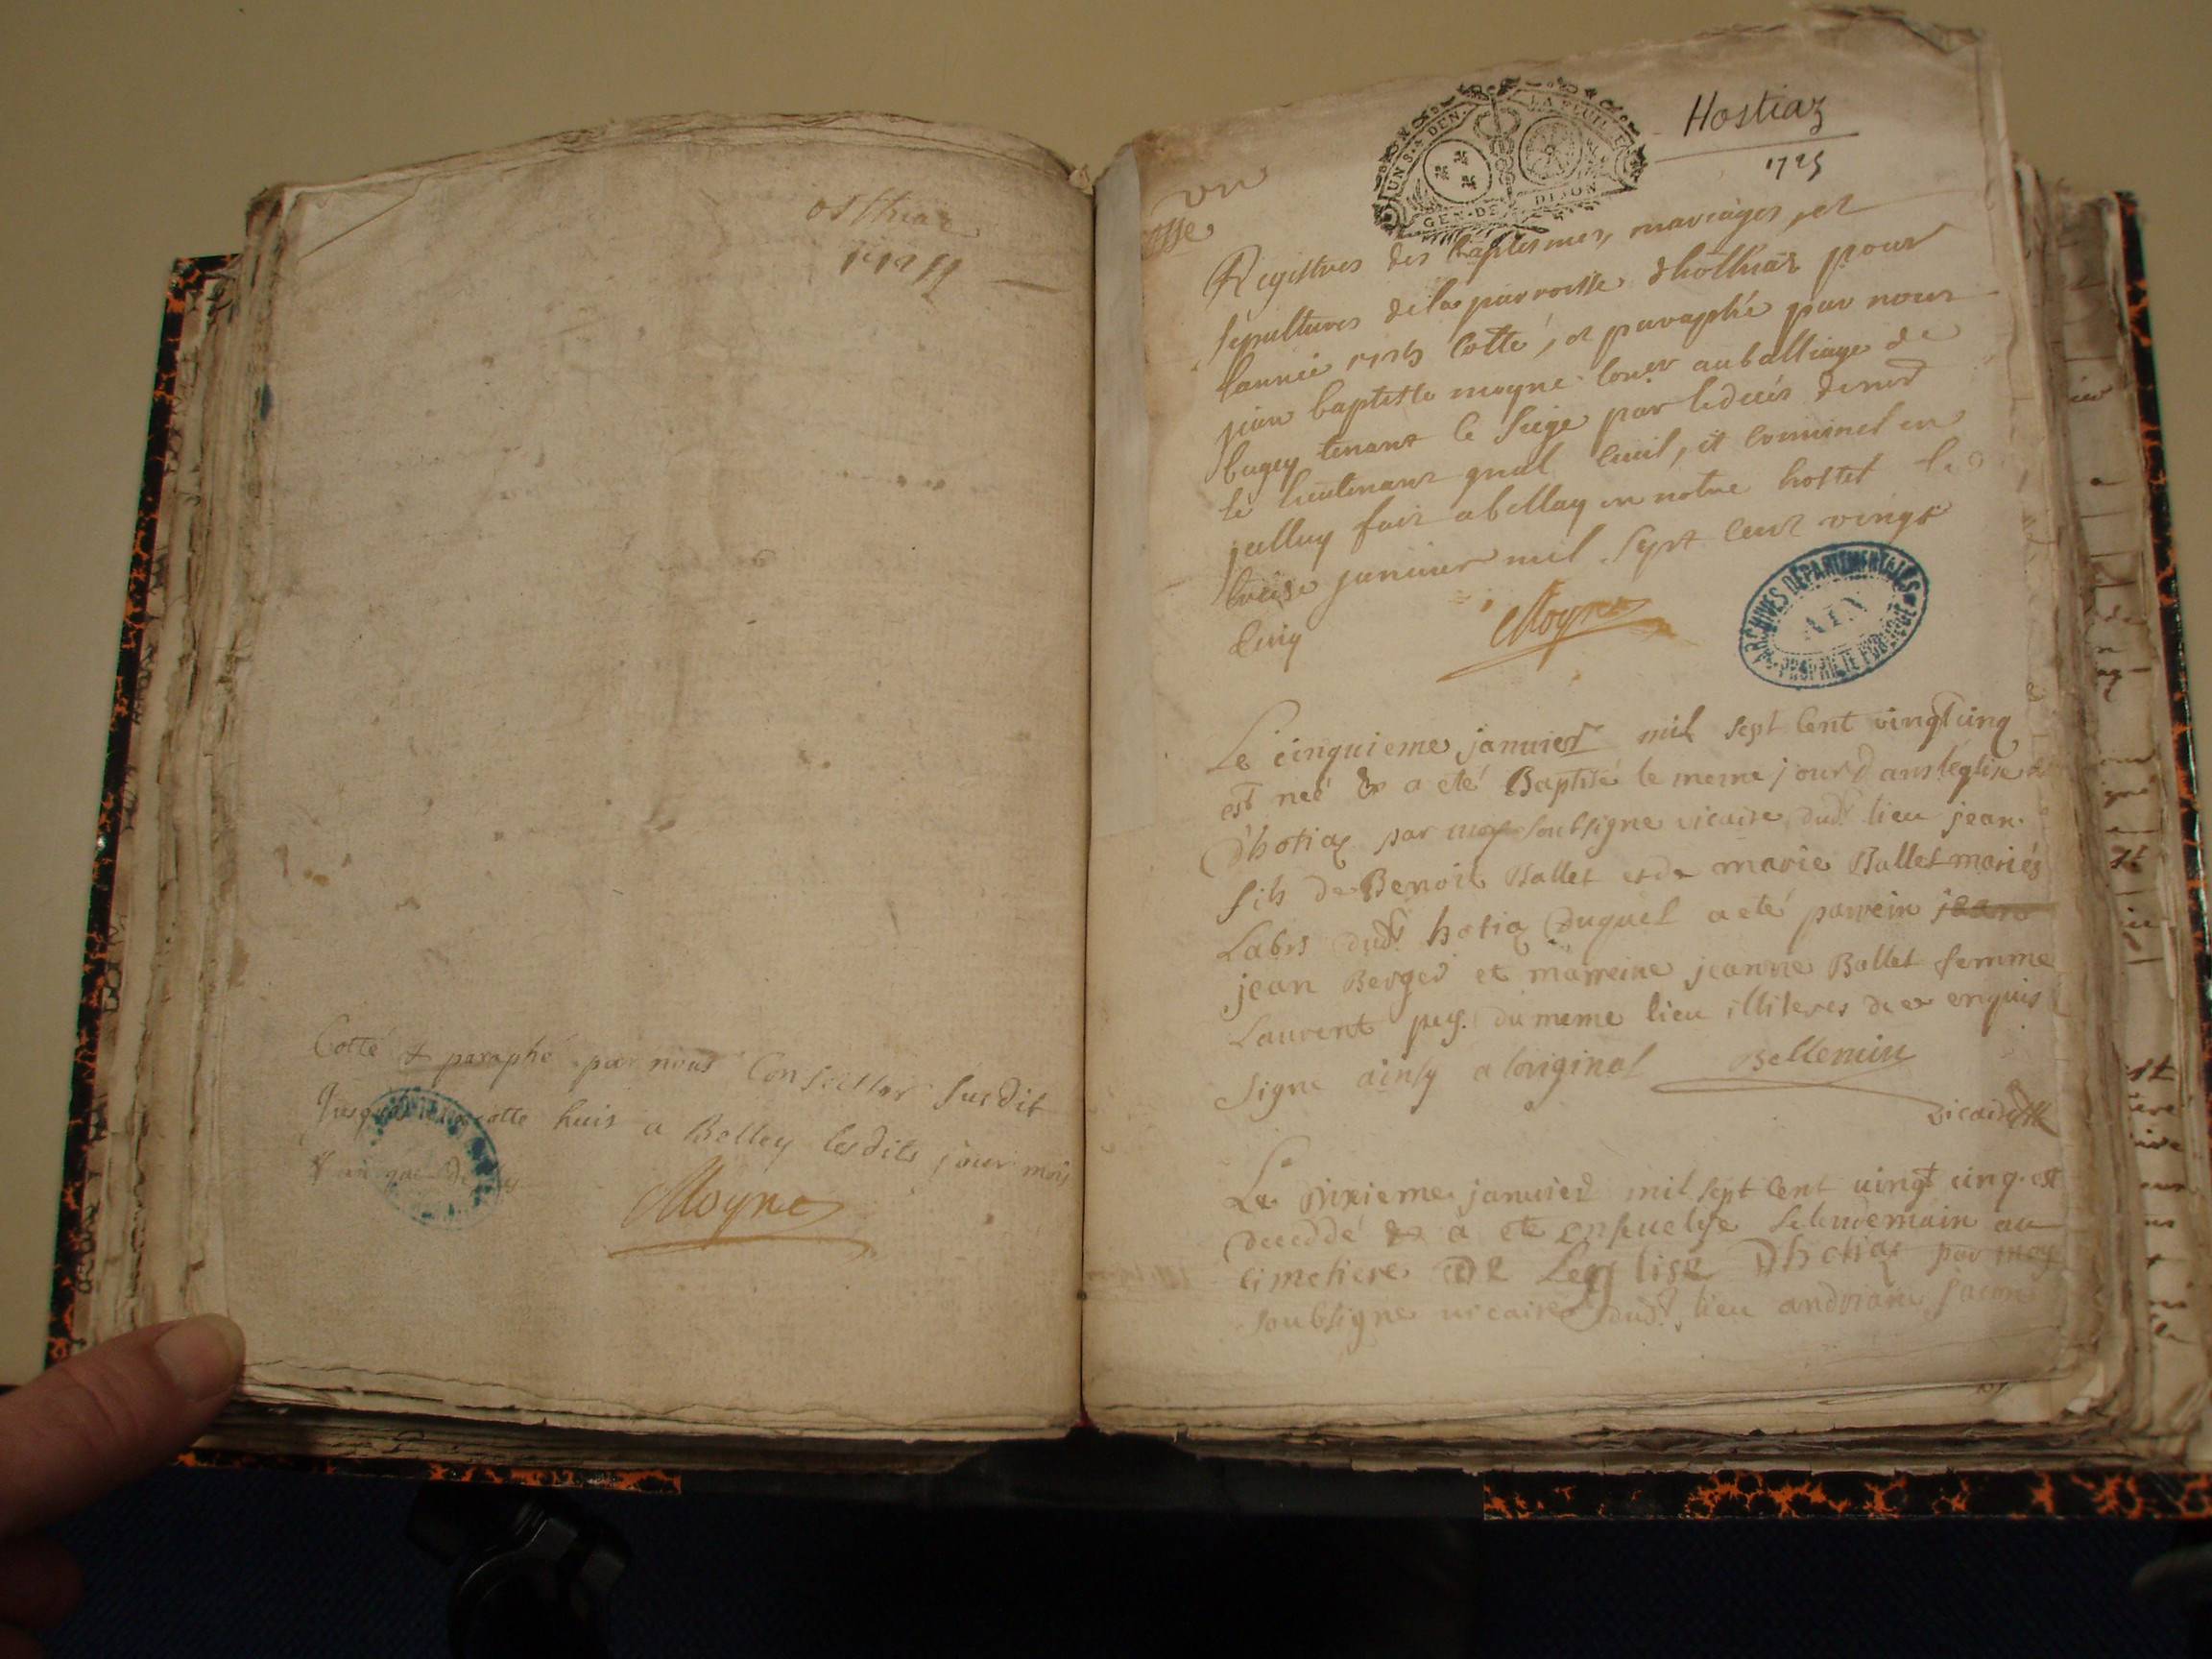 osthiaz
Cotté & paraphé par nous Conseiller susdit
cotte huit a Belley lesdits jour mois
Moyne
un
Hostiaz
1725
UN S. 4 DEN. LA FEUILLE
GEN. DE DIJON
Registres des baptesmes, mariages, et
sépultures de la parroisse dhosthiaz pour
lannée 1725 cotté, et paraphé par nous
jean baptiste moyne coner au balliage de
bugey tenant le siege par le deces de mr
le lieutenant gnal civil, et criminel en
jcelluy fait a bellay en notre hostel le
treise janvier mil sept cent vingt
cinq
Moyne
ARCHIVES DEPARTEMENTALES
AIN
PROPRIETE PUBLIQUE
Le cinquieme janvier mil sept cent vingt cinq
est neé & a eté Baptisé le meme jour dans leglise
d'hotiaz par moy soubsigne vicaire dudt lieu jean
fils de Benoit Ballet et de marie Ballet mariés
Labrs dudt hotiaz duquel a eté parrein jean
jean Berger et marreine jeanne Ballet femme
Laurent pey. du meme lieu illiteres de ce enquis
signe ainsy a loriginal Bellemin
vicaire
Le dixieme janvier mil sept cent vingt cinq est
decedé & a ete ensevelye le lendemain au
cimetiere De Leglise Dhotiaz par moy
soubsigne vicaire dudt lieu